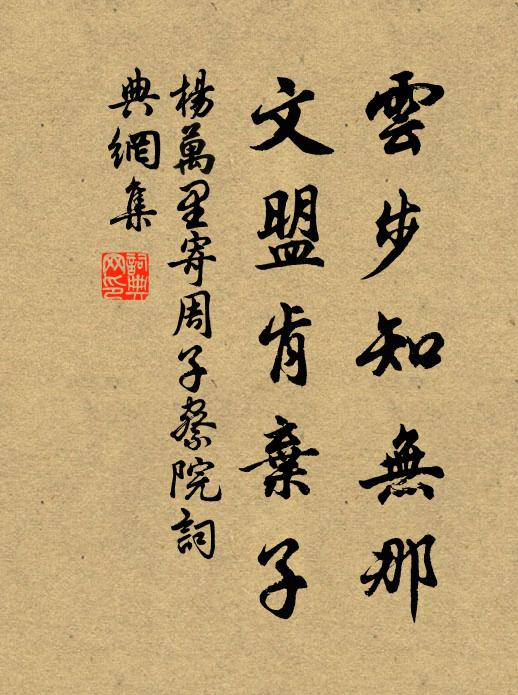 雲步知無那
文盟肯棄子
楊萬里寄周子察院詞
典網集
詞典
网印